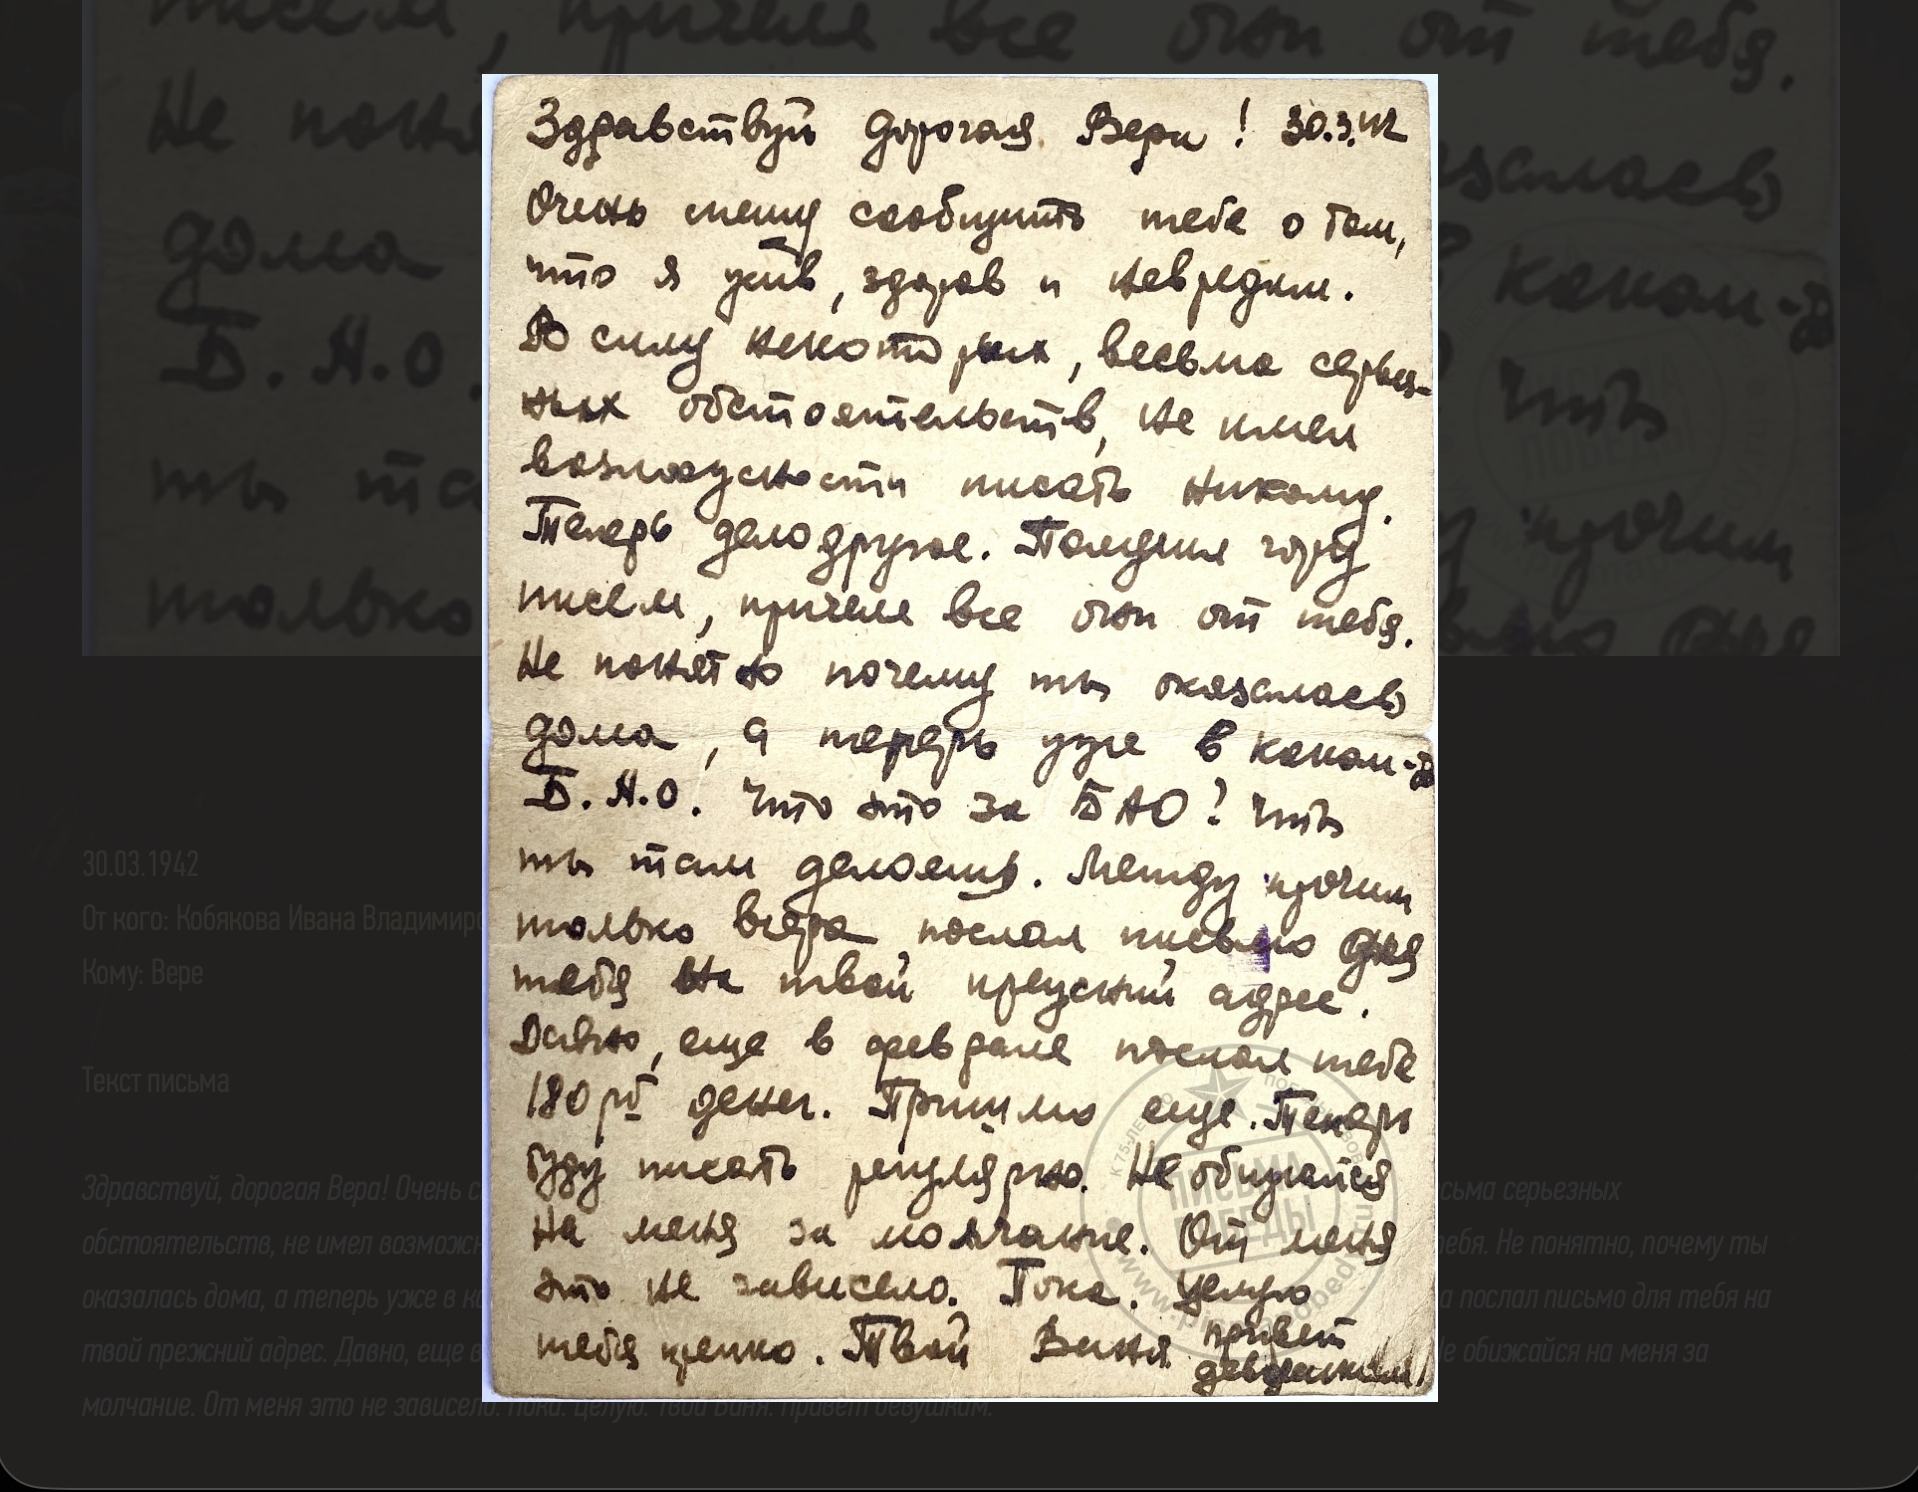 писем, причем все они от тебя.
Не
дома
Б. Н. О.
ты
только
Здравствуй дорогая Вера! 30.3.42
Очень спешу сообщить тебе о том,
что я жив, здоров и невредим.
В силу некоторых, весьма серьез-
ных обстоятельств, не имел
возможности писать никому.
Теперь дело другое. Получил гору
писем, причем все они от тебя.
Не понятно почему ты оказалась
дома, а теперь уже в каком-то
Б.А.О. Что это за БАО? Что
ты там делаешь. Между прочим
только вчера послал письмо для
тебя на твой прежний адрес.
Давно, еще в феврале послал тебе
180 рб денег. Пришлю еще. Теперь
буду писать регулярно. Не обижайся
на меня за молчание. От меня
это не зависело. Пока. Целую
тебя крепко. Твой Ваня привет
девушкам!
ПИСЬМА
ПОБЕДЫ
30.03.1942
От кого: Кобякова Ивана Владимиро
Кому: Вере
Текст письма
Здравствуй, дорогая Вера! Очень с сьма серьезных
обстоятельств, не имел возможн тебя. Не понятно, почему ты
оказалась дома, а теперь уже в ка а послал письмо для тебя на
твой прежний адрес. Давно, еще в Не обижайся на меня за
молчание. От меня это не зависело. Пока. Целую. Твой Ваня. Привет девушкам.